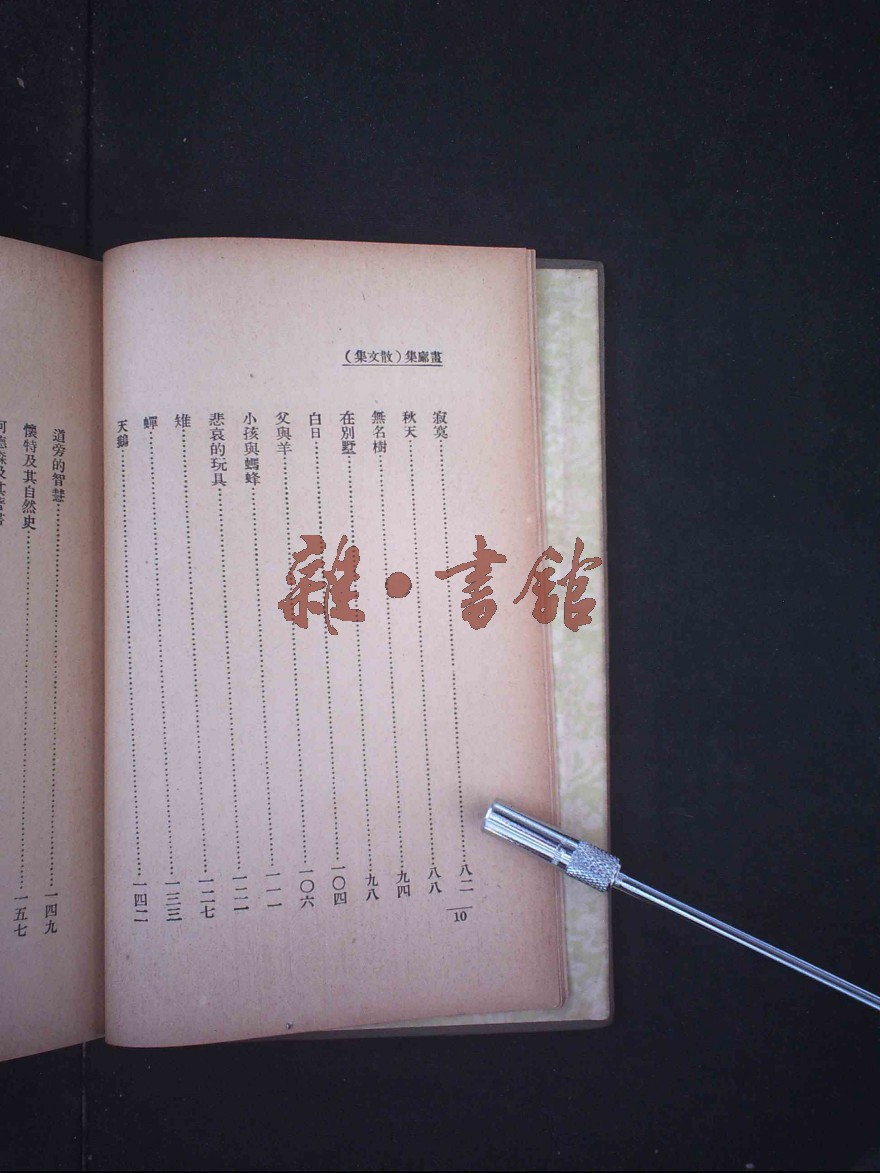 畫廊集（散文集）
寂寞……八二
秋天……八八
無名樹……九四
在別墅……九八
白日……一〇四
父與羊……一〇六
小孩與螞蜂……一一一
悲哀的玩具……一二二
雉……一二七
蟬……一三三
天鵝……一四二
10
道旁的智慧……一四九
懷特及其自然史……一五七
雜·書館